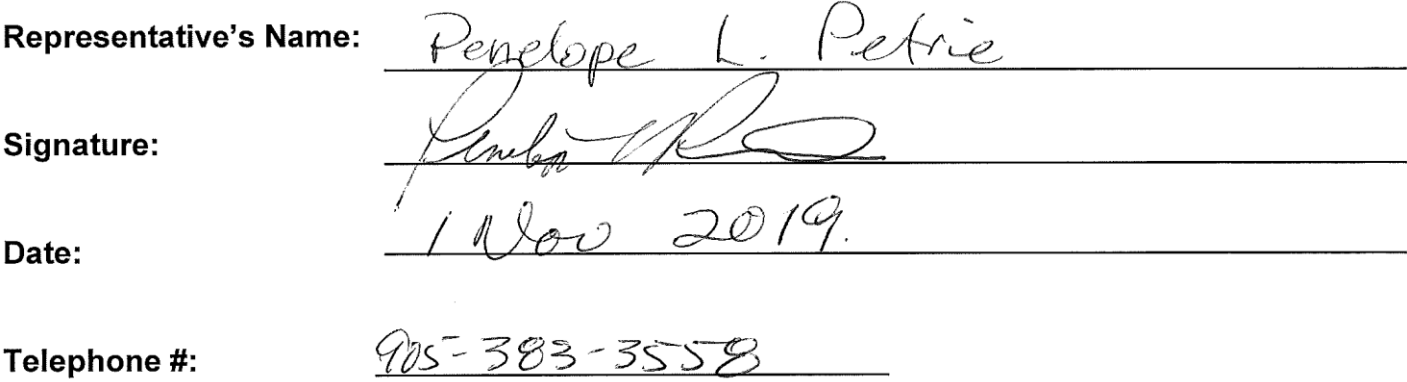 Representative's Name: Penelope L. Petrie
Signature:
Date: 1 Nov 2019.
Telephone #: 905-383-3558